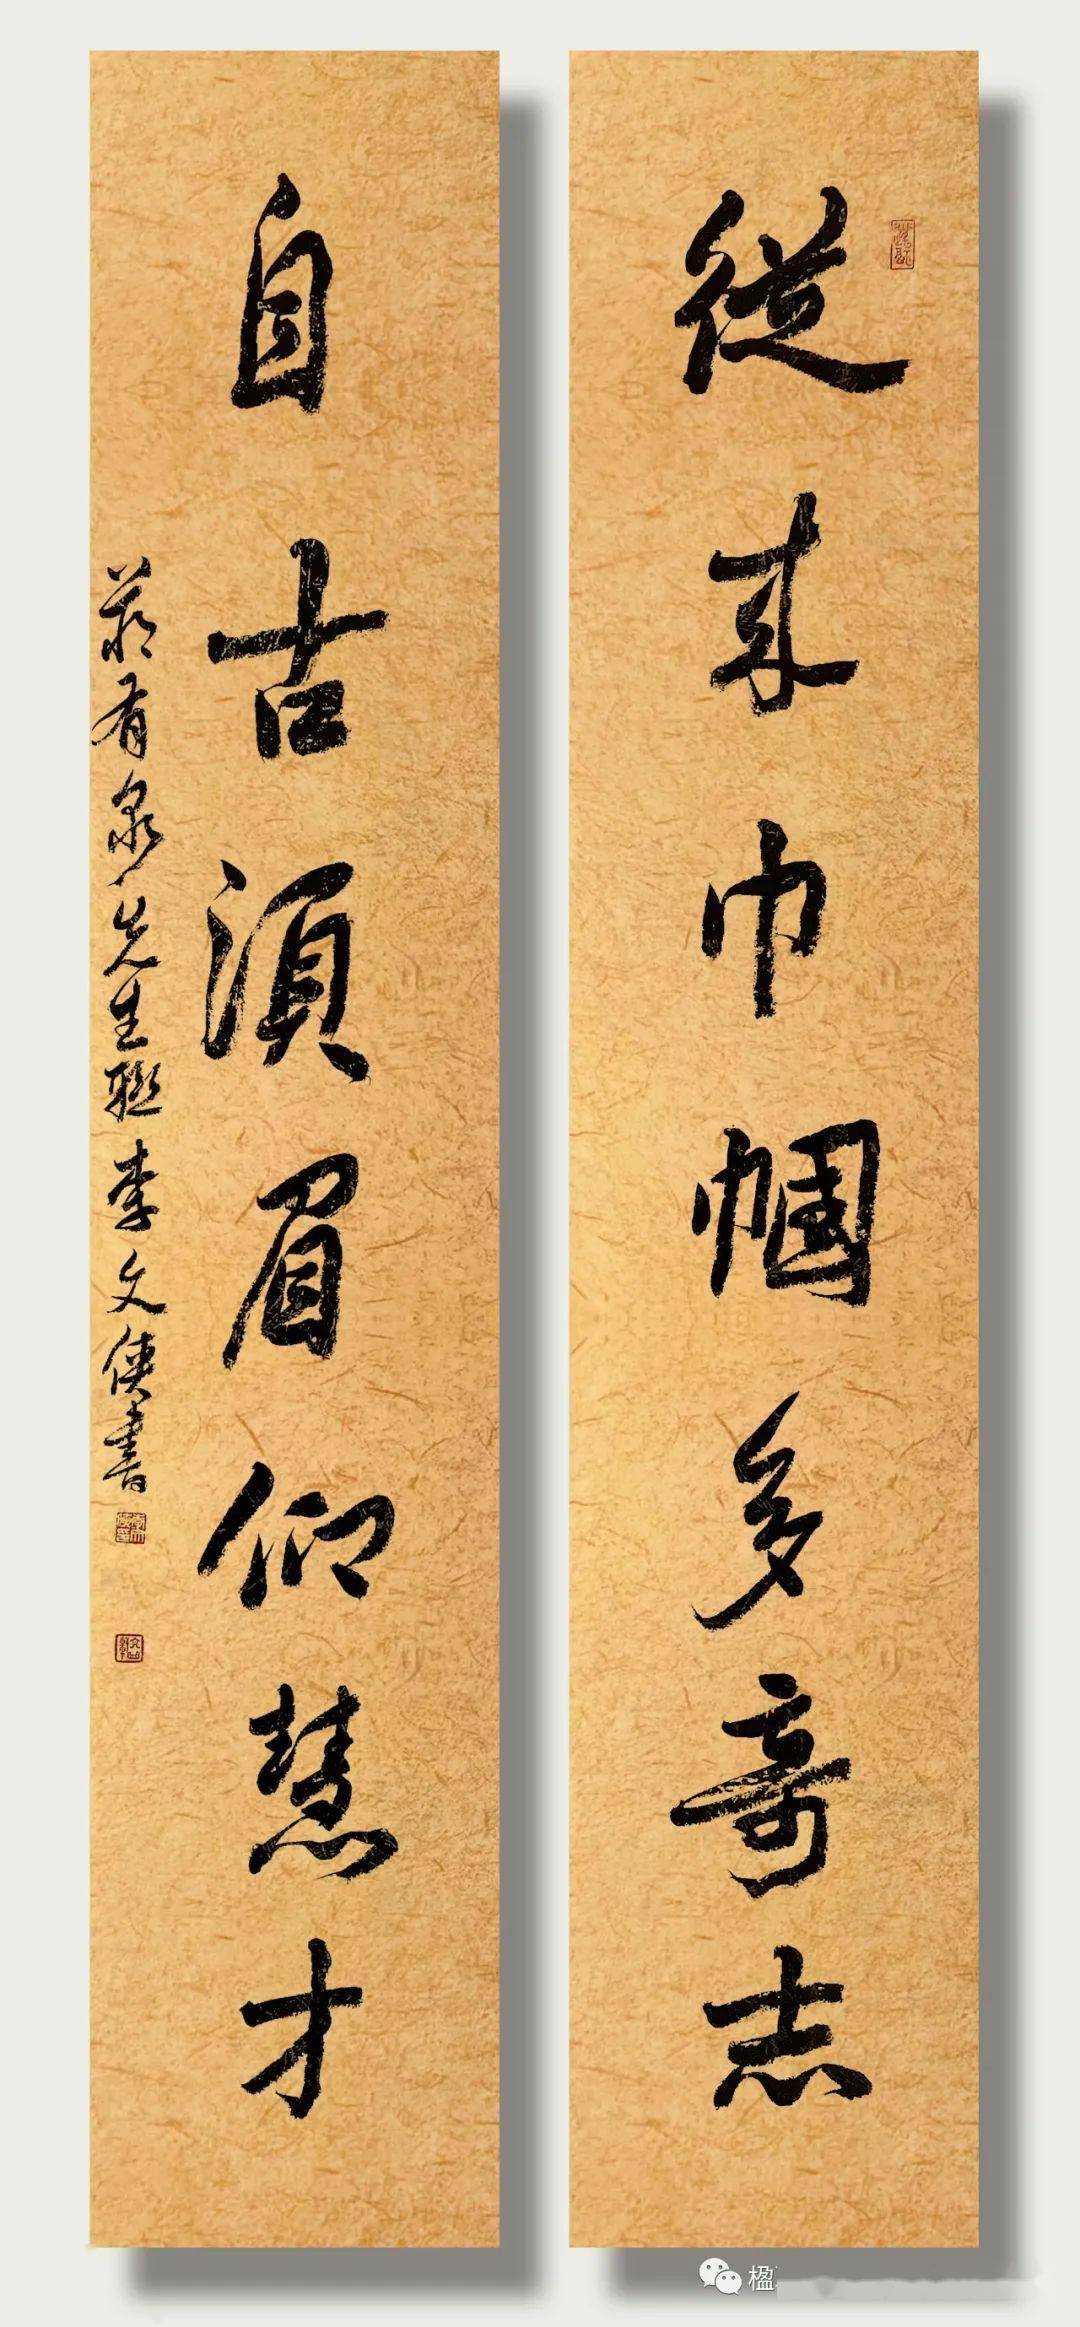 從来巾帼多奇志
自古須眉仰慧才
蔡有泉先生聯 李文俠書
楹